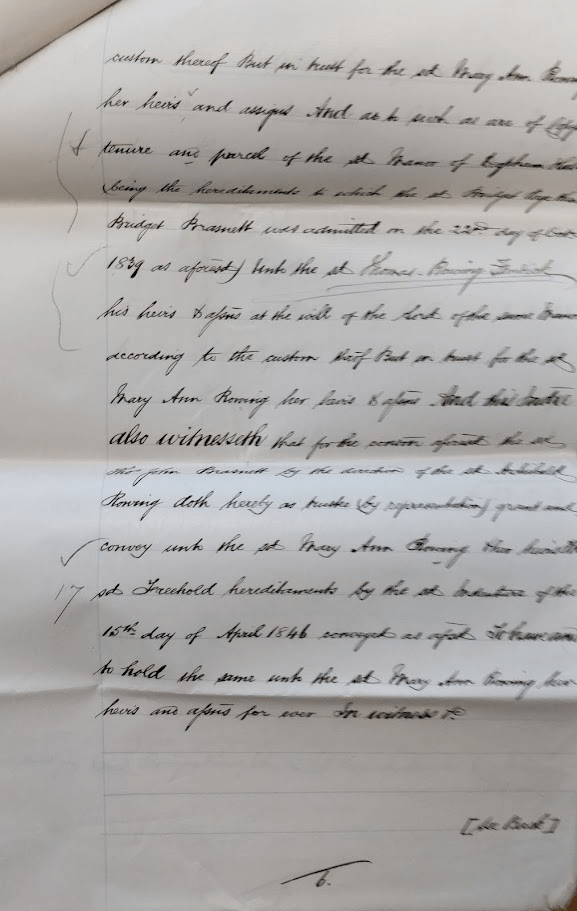 custom thereof But in trust for the sd Mary Ann Rowing
her heirs and assigns And as to such as are of Copy
tenure and parcel of the sd Manor of
being the hereditaments to which the sd Bridget
Bridget Brasnett was admitted on the 22nd day of Oct
1839 as aforesd) Unto the sd Thomas Rowing
his heirs & assns at the will of the Lord of the same Manor
according to the custom throf But in trust for the sd
Mary Ann Rowing her heirs & assns And this Indre
also witnesseth that for the conson aforesd the sd
Thos John Brasnett by the direction of the sd Archibald
Rowing doth hereby as trustee (by representation) grant and
convey unto the sd Mary Ann Rowing her heirs the
17 sd Freehold hereditaments by the sd Indenture of the
15th day of April 1846 conveyed as afsd To have and
to hold the same unto the sd Mary Ann Rowing her
heirs and assns for ever In witness &c
[See Back]
6.